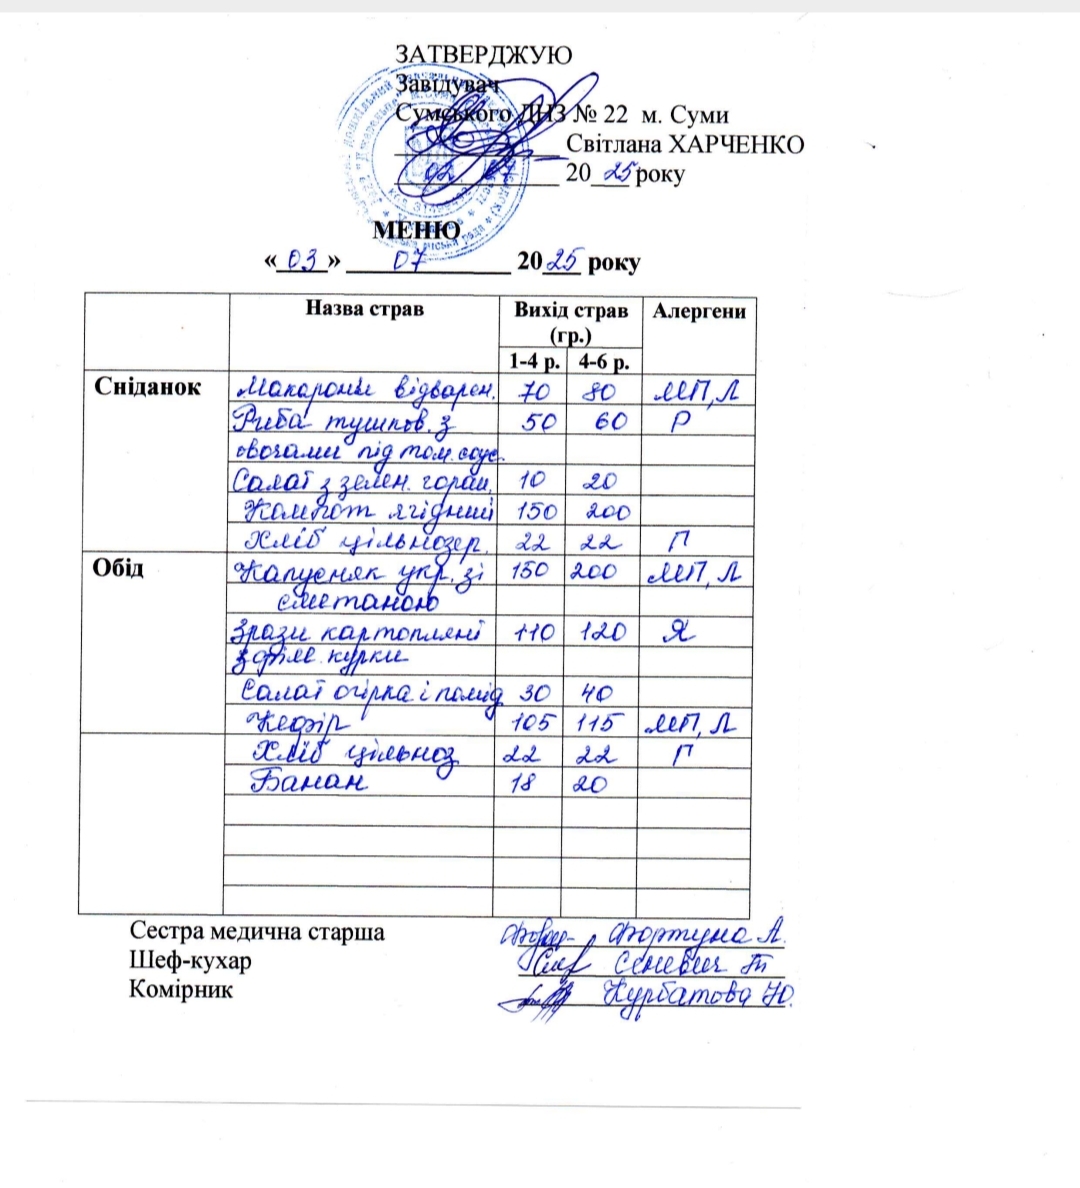 ЗАТВЕРДЖУЮ
Завідувач
Сумського ДНЗ № 22 м. Суми
Світлана ХАРЧЕНКО
02 07 2025 року
МЕНЮ
«03» 07 2025 року
Назва страв Вихід страв (гр.) Алергени
1-4 р. 4-6 р.
Сніданок Макарони відварен. 70 80 МП, Л
Риба тушков. з 50 60 Р
овочами під том. соус.
Салат з зелен. горош. 10 20
Компот ягідний 150 200
Хліб цільнозер. 22 22 Г
Обід Капусняк укр. зі 150 200 МП, Л
сметаною
Зрази картопляні 110 120 Я
з філе курки
Салат огірка і помід 30 40
Кефір 105 115 МП, Л
Хліб цільноз 22 22 Г
Банан 18 20
Сестра медична старша Фортуна Л.
Шеф-кухар Сеневич Т
Комірник Курбатова Ю.